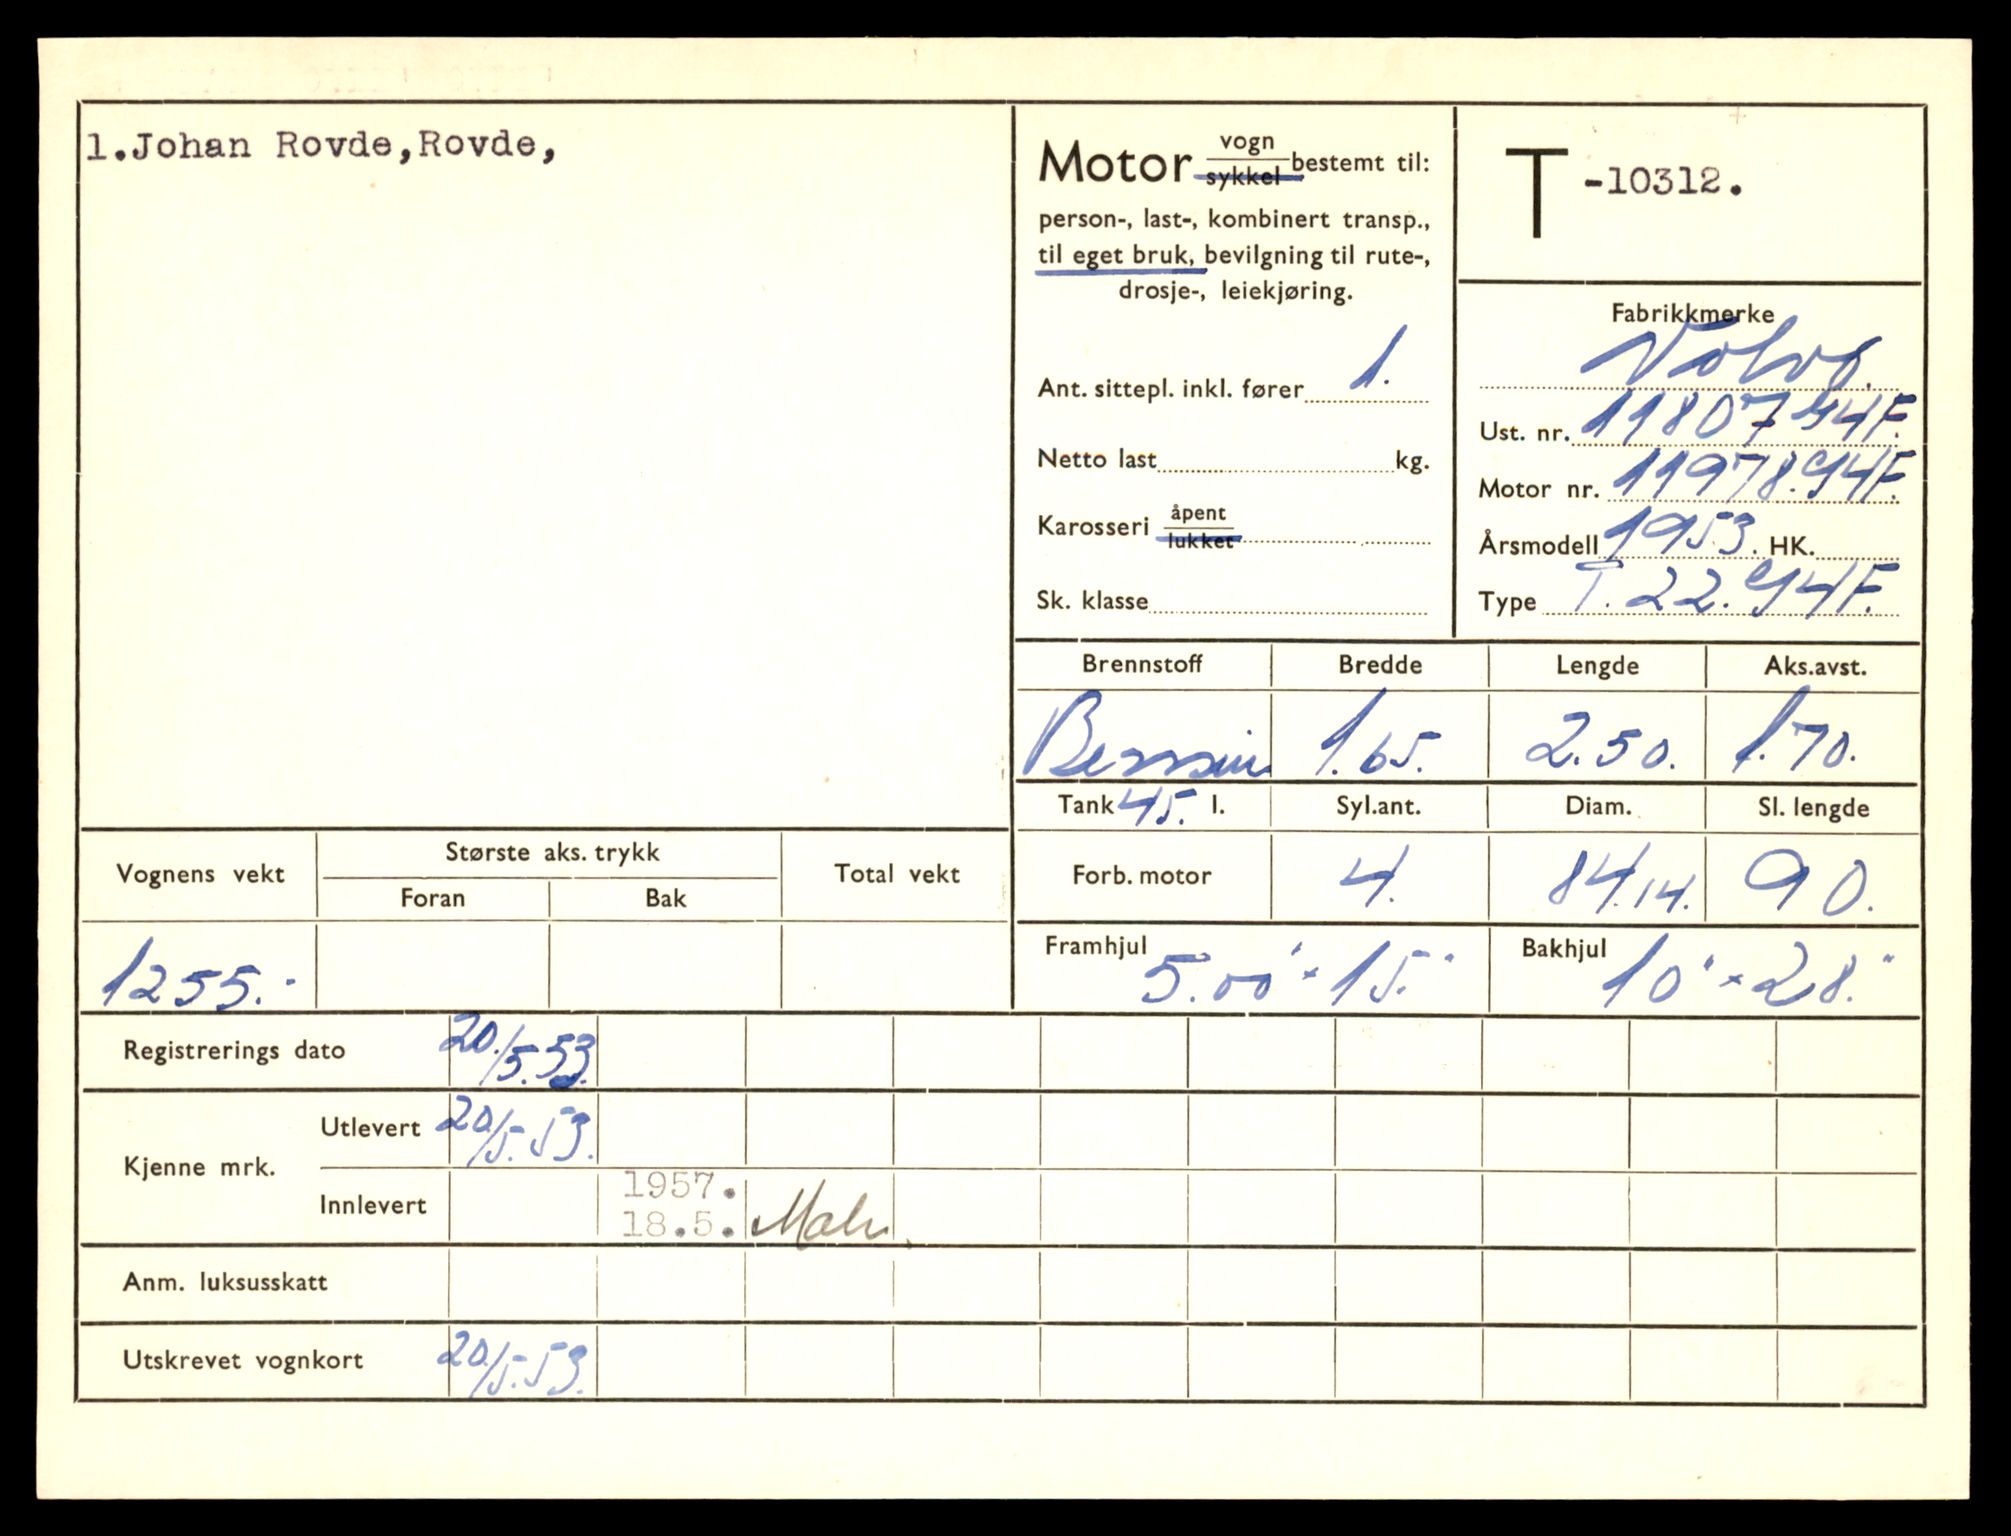 1.Johan Rovde,Rovde,
Motor vogn
sykkel bestemt til:
person-, last-, kombinert transp.,
til eget bruk, bevilgning til rute-,
drosje-, leiekjøring.
Ant. sittepl. inkl. fører 1.
Netto last kg.
Karosseri åpent
lukket
Sk. klasse
T -10312.
Fabrikkmerke
Volvo.
Ust. nr. 11807
Motor nr. 11978.
Årsmodell 1953. HK.
Type T. 22.
Brennstoff Bredde Lengde Aks.avst.
Bensin 1.65. 2.50. 1.70.
Tank 45. l. Syl.ant. Diam. Sl. lengde
Forb. motor 4. 84.14. 90.
Framhjul 5.00" x 15." Bakhjul 10" x 28."
Vognens vekt Største aks. trykk Total vekt
Foran Bak
1255.-
Registrerings dato 20./5.53.
Kjenne mrk. Utlevert 20/5.53.
Innlevert 1957.
18.5.
Anm. luksusskatt
Utskrevet vognkort 20/5.53.